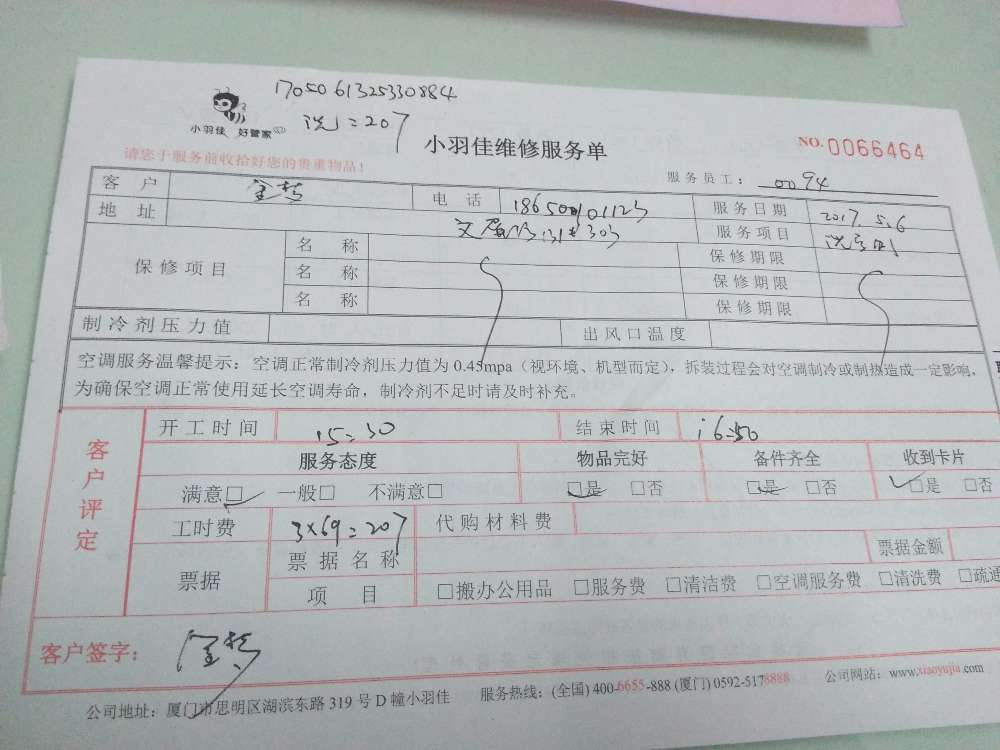 1705061325330884
洗1=207
小羽佳 好管家
小羽佳维修服务单
NO.0066464
请您于服务前收拾好您的贵重物品!
服务员工: 0094
客户 电话 服务日期 2017.5.6
地址 服务项目
保修项目 名称 保修期限
名称 保修期限
名称 保修期限
制冷剂压力值 出风口温度
空调服务温馨提示: 空调正常制冷剂压力值为 0.45mpa (视环境、机型而定), 拆装过程会对空调制冷或制热造成一定影响,
为确保空调正常使用延长空调寿命, 制冷剂不足时请及时补充。
客户评定
开工时间 15:30 结束时间 16:50
服务态度 物品完好 备件齐全 收到卡片
满意□ 一般□ 不满意□ □是 □否 □是 □否 □是 □否
工时费 3×69=207 代购材料费
票据 票据名称 票据金额
项目 □搬办公用品 □服务费 □清洁费 □空调服务费 □清洗费 □疏通
客户签字:
公司地址: 厦门市思明区湖滨东路 319 号 D 幢小羽佳 服务热线: (全国) 400-6655-888 (厦门) 0592-5178888 公司网站: www.xiaoyujia.com